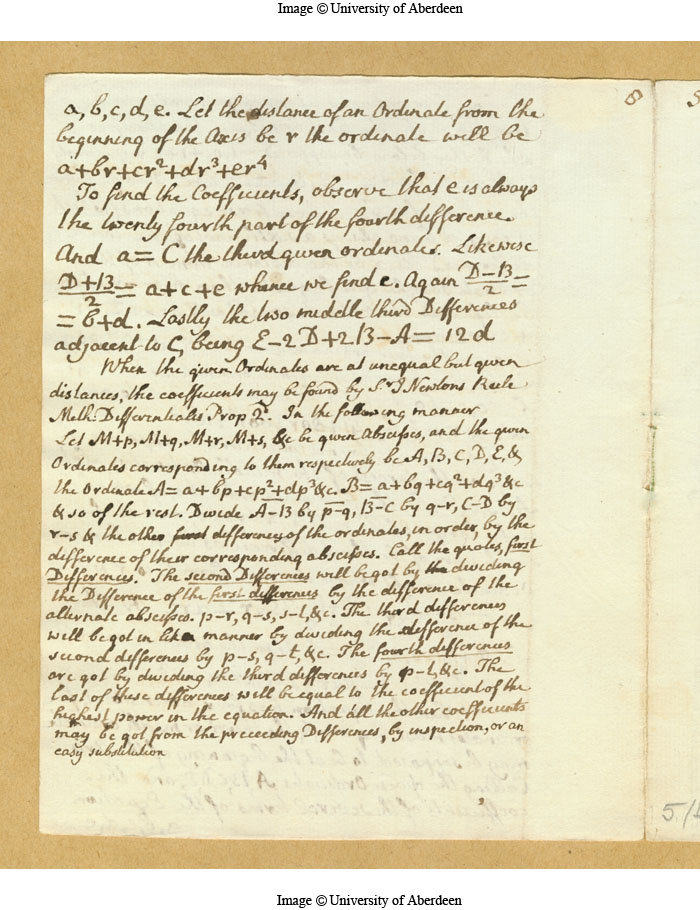 Image © University of Aberdeen
8
a, b, c, d, e. Let the distance of an Ordinate from the
beginning of the Axis be r the ordinate will be
a+br+cr²+dr³+er⁴
To find the Coefficients, observe that e is always
the twenty fourth part of the fourth difference.
And a = C the third given ordinate. Likewise
D+B/2 = a+c+e whence we find c. Again D−B/2 =
= b+d. Lastly the two middle third Differences
adjacent to C, being E−2D+2B−A = 12d
When the given Ordinates are at unequal but given
distances, the coefficients may be found by Sr I Newtons Rule
Meth: Differentialis Prop 2d. In the following manner
Let M+p, M+q, M+r, M+s, &c be given Abscisses, and the given
Ordinates corresponding to them respectively be A, B, C, D, E, &
the Ordinate A = a+bp+cp²+dp³&c. B = a+bq+cq²+dq³&c
& so of the rest. Divide A−B by p−q, B−C by q−r, C−D by
r−s & the other differences of the ordinates, in order, by the
difference of their corresponding abscisses. Call the quotes, first
Differences. The second Differences will be got by dividing
the Difference of the first differences by the difference of the
alternate abscisses. p−r, q−s, s−t, &c. The third differences
will be got in like manner by dividing the difference of the
second differences by p−s, q−t, &c. The fourth differences
are got by dividing the third differences by p−t, &c. The
last of these differences will be equal to the coefficient of the
highest power in the equation. And all the other coefficients
may be got from the preceeding Differences, by inspection, or an
easy substitution
5/
Image © University of Aberdeen